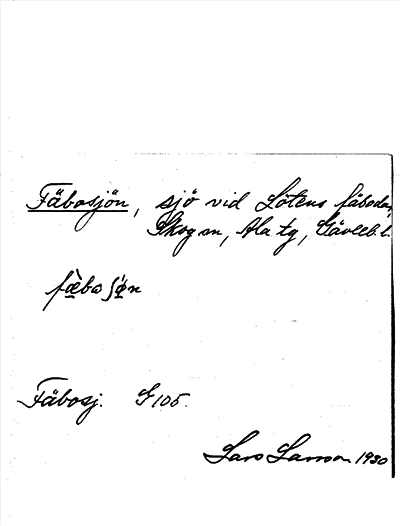 Fäbosjön, sjö vid Lötens fäbodar,
Skog sn, Ala tg, Gävleb. l.
fæ̀bo ʃǿn
Fäbosj. G 105.
Lars Larsson 1930